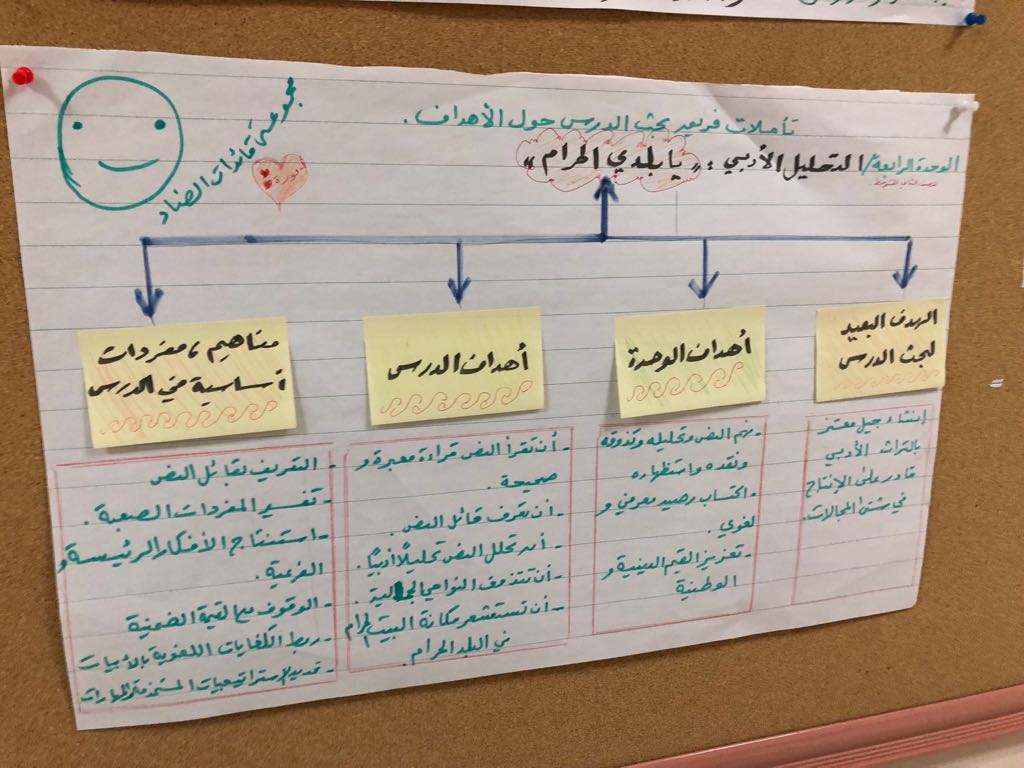 تأملات فريق بحث الدرس حول الأهداف.
الوحدة الرابعة/ التحليل الأدبي: "يا بلدي الحرام"
مجموعة قائدات الضاد
الهدف البعيد
لبحث الدرس
إنشاء جيل معتز
بالتراث الأدبي
قادر على الإنتاج
في شتى المجالات.
أهداف الوحدة
- فهم النص وتحليله وتذوقه
ونقده واستظهاره
- اكتساب رصيد معرفي و
لغوي.
- تعزيز القيم الدينية و
الوطنية
أهداف الدرس
- أن تقرأ النص قراءة معبرة و
صحيحة.
- أن تعرف قائل النص.
- أن تحلل النص تحليلًا أدبيًا.
- أن تتذوق النواحي الجمالية.
- أن تستشعر مكانة البيت الحرام
في البلد الحرام.
مفاهيم، مفردات
أساسية في الدرس
- التعريف بقائل النص
- تفسير المفردات الصعبة.
- استنتاج الأفكار الرئيسة و
الفرعية.
- الوقوف على القيمة الضمنية
- ربط الكفايات اللغوية بالأبيات